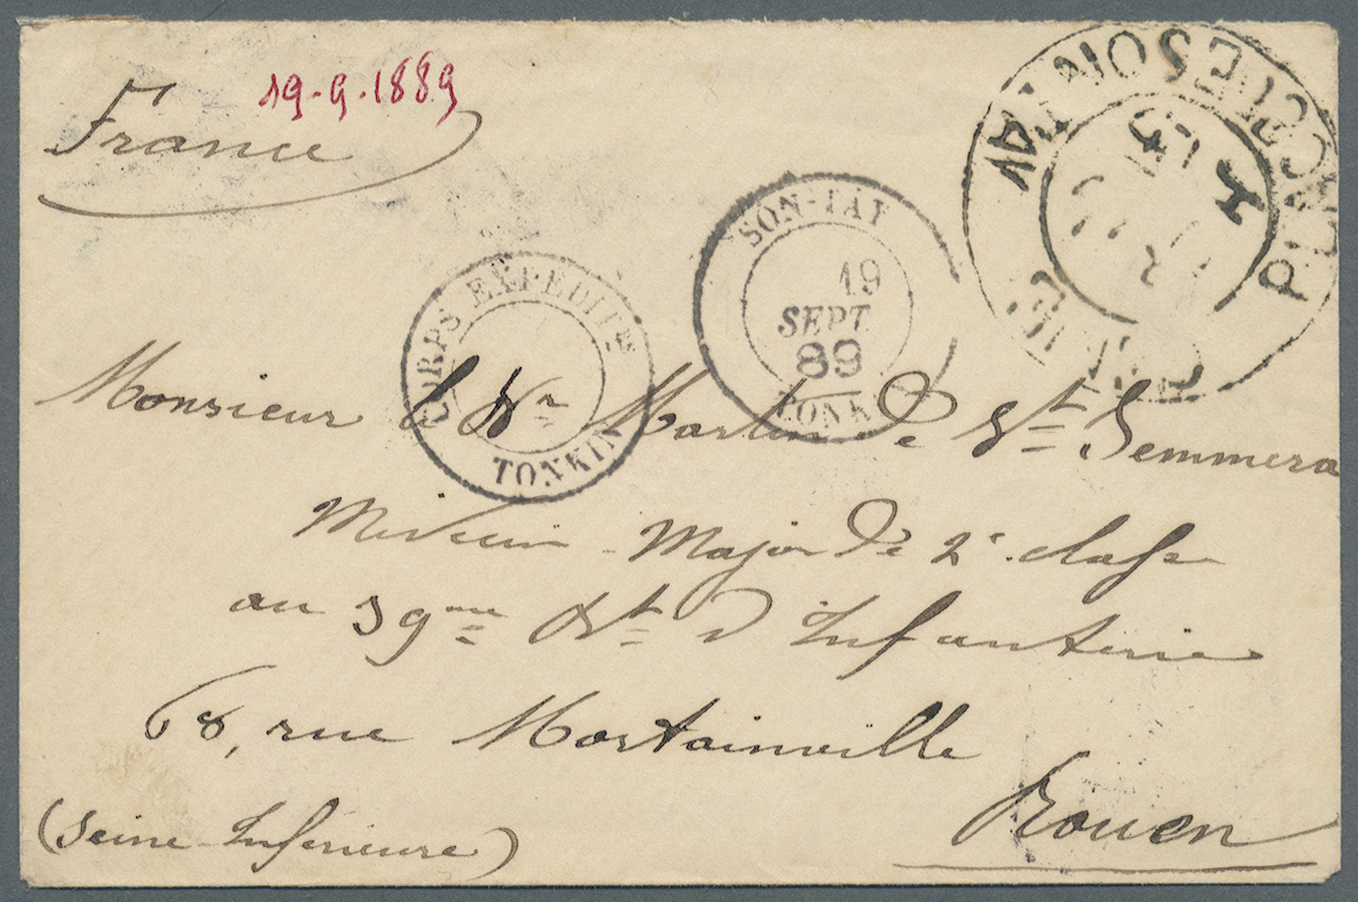 France
19-9-1889
PLACE DE SON TAY
SON-TAY
19
SEPT
89
TONKIN
CORPS EXPEDIT.RE
TONKIN
Monsieur le Dr Martin de St Semmera
Médecin-Major de 2e classe
au 39me Rt d'Infanterie
68, rue Martainville
Rouen
(Seine-Inférieure)